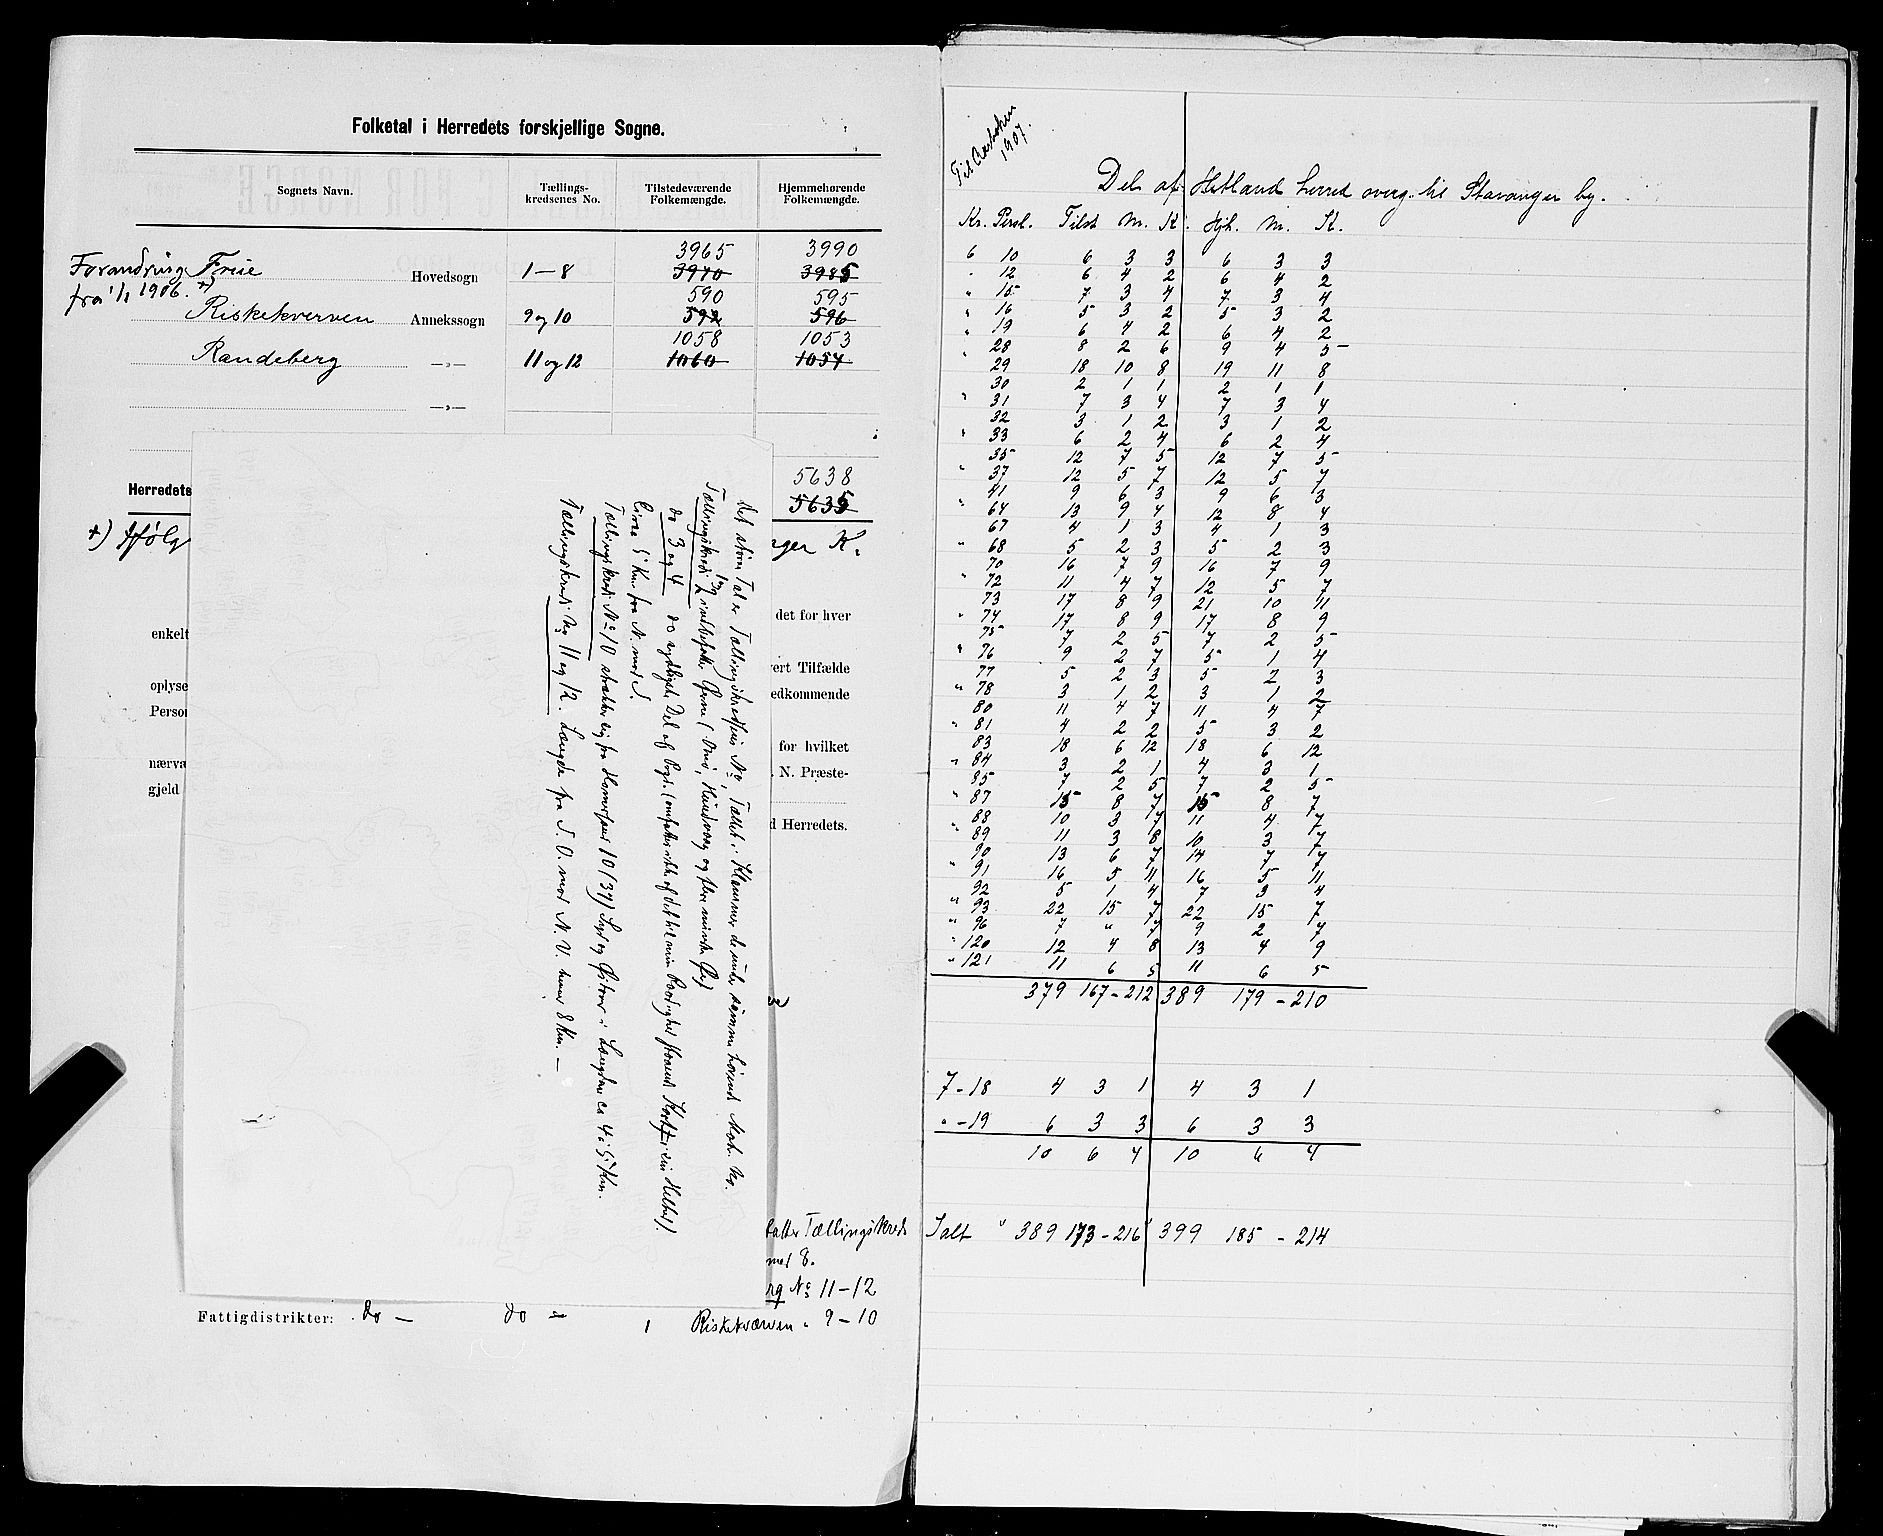 Folketal i Herredets forskjellige Sogne.
Sognets Navn. Tællings-kredsenes No. Tilstedeværende Folkemængde. Hjemmehørende Folkemængde.
3965 3990
Forandring Frue Hovedsogn 1–8 3970 3985
fra 1/1 1906. +)
590 595
Riskekverven Annekssogn 9 og 10 592 596
1058 1053
Randeberg —„— 11 og 12 1060 1054
—„—
5638
Herredets 5635
+) Ifølg nger K.
det for hver
enkelt
vert Tilfælde
oplyse edkommende
Person
for hvilket
nærvæ . N. Præste-
gjeld
d Herredets.
det større Tal er Tællingskredsens No, Tallet i Klammer de under samme hørende Mat. No.
Tællingskreds 1 og 2 indbefatter Øerne (Omø, Hundvaag og flere mindre Øer)
do 3 og 4 do sydligste Del af Prgj.
Circa 5 Km. fra N. mod S.
Tællingskreds No 10 strækker sig fra 10 (37) Syd og i Længden ca 4 à 5 Km.
Tællingskreds No 11 og 12. Længde fra S.O. mod N.V. 8 Km. —
fatter Tællingskreds
med 8.
rg No 11–12
Fattigdistrikter: do — do — Riskekværven „ 9–10
Til Aarboken
1907.
Del af Hetland herred overg. til Stavanger by.
Kr. Persl. Tilst M. K. Hjh. M. K.
6 10 6 3 3 6 3 3
„ 12 6 4 2 6 4 2
„ 15 7 3 4 7 3 4
„ 16 5 3 2 5 3 2
„ 19 6 4 2 6 4 2
„ 28 8 2 6 9 4 5
29 18 10 8 19 11 8
30 2 1 1 2 1 1
„ 31 7 3 4 7 3 4
32 3 1 2 3 1 2
„ 33 6 2 4 6 2 4
35 12 7 5 12 7 5
„ 37 12 5 7 12 5 7
41 9 6 3 9 6 3
„ 64 13 9 4 12 8 4
67 4 1 3 4 1 3
„ 68 5 2 3 5 2 3
70 16 7 9 16 7 9
„ 72 11 4 7 12 5 7
73 17 8 9 21 10 11
„ 74 17 8 9 17 8 9
75 7 2 5 7 2 5
„ 76 9 2 7 5 1 4
77 5 2 3 5 2 3
„ 78 3 1 2 3 1 2
80 11 4 7 11 4 7
„ 81 4 2 2 5 3 2
83 18 6 12 18 6 12
„ 84 3 2 1 4 3 1
85 7 2 5 7 2 5
„ 87 15 8 7 15 8 7
88 10 3 7 11 4 7
„ 89 11 3 8 10 3 7
90 13 6 7 14 7 7
„ 91 16 5 11 16 5 11
92 5 1 4 7 3 4
„ 93 22 15 7 22 15 7
„ 96 7 „ 7 9 2 7
„ 120 12 4 8 13 4 9
„ 121 11 6 5 11 6 5
379 167 – 212 389 179 – 210
7 – 18 4 3 1 4 3 1
„ – 19 6 3 3 6 3 3
10 6 4 10 6 4
Ialt „ 389 173 – 216 399 185 – 214